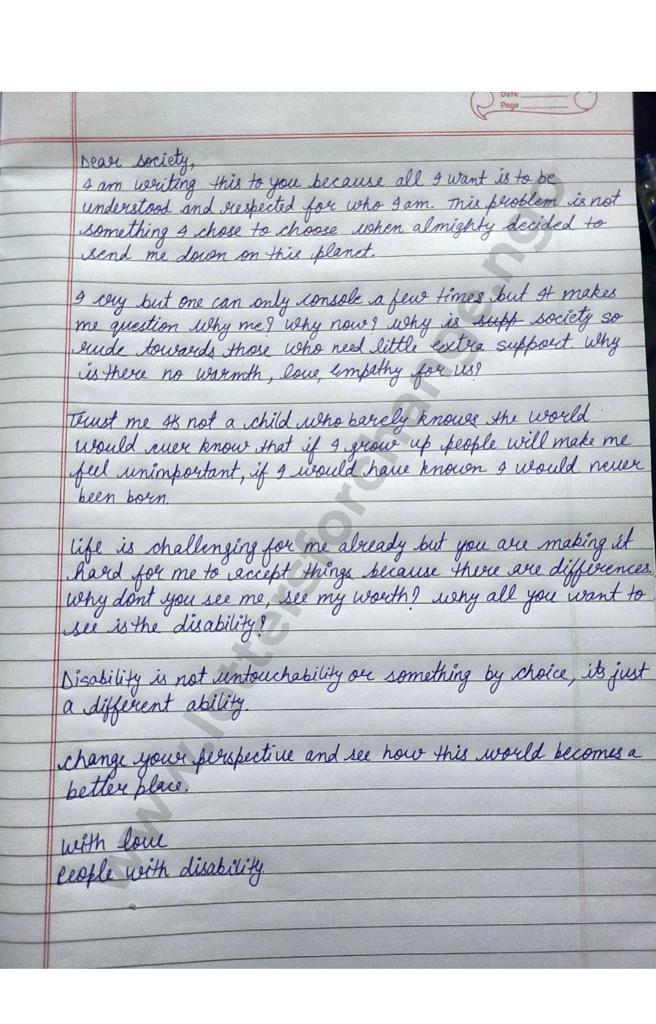 Date
Page
Dear society,
I am writing this to you because all I want is to be
understood and respected for who I am. This problem is not
something I chose to choose when almighty decided to
send me down on this planet.
I cry but one can only console a few times but It makes
me question why me? why now? why is supp society so
rude towards those who need little extra support why
is there no warmth, love, empathy for us?
Trust me Its not a child who barely knows the world
would ever know that if I grow up people will make me
feel unimportant, if I would have known I would never
been born.
Life is challenging for me already but you are making it
hard for me to accept things because there are differences
why dont you see me, see my worth? why all you want to
see is the disability?
Disability is not untouchability or something by choice, its just
a different ability.
change your perspective and see how this world becomes a
better place.
with love
People with disability
www.lettersforchange.ngo